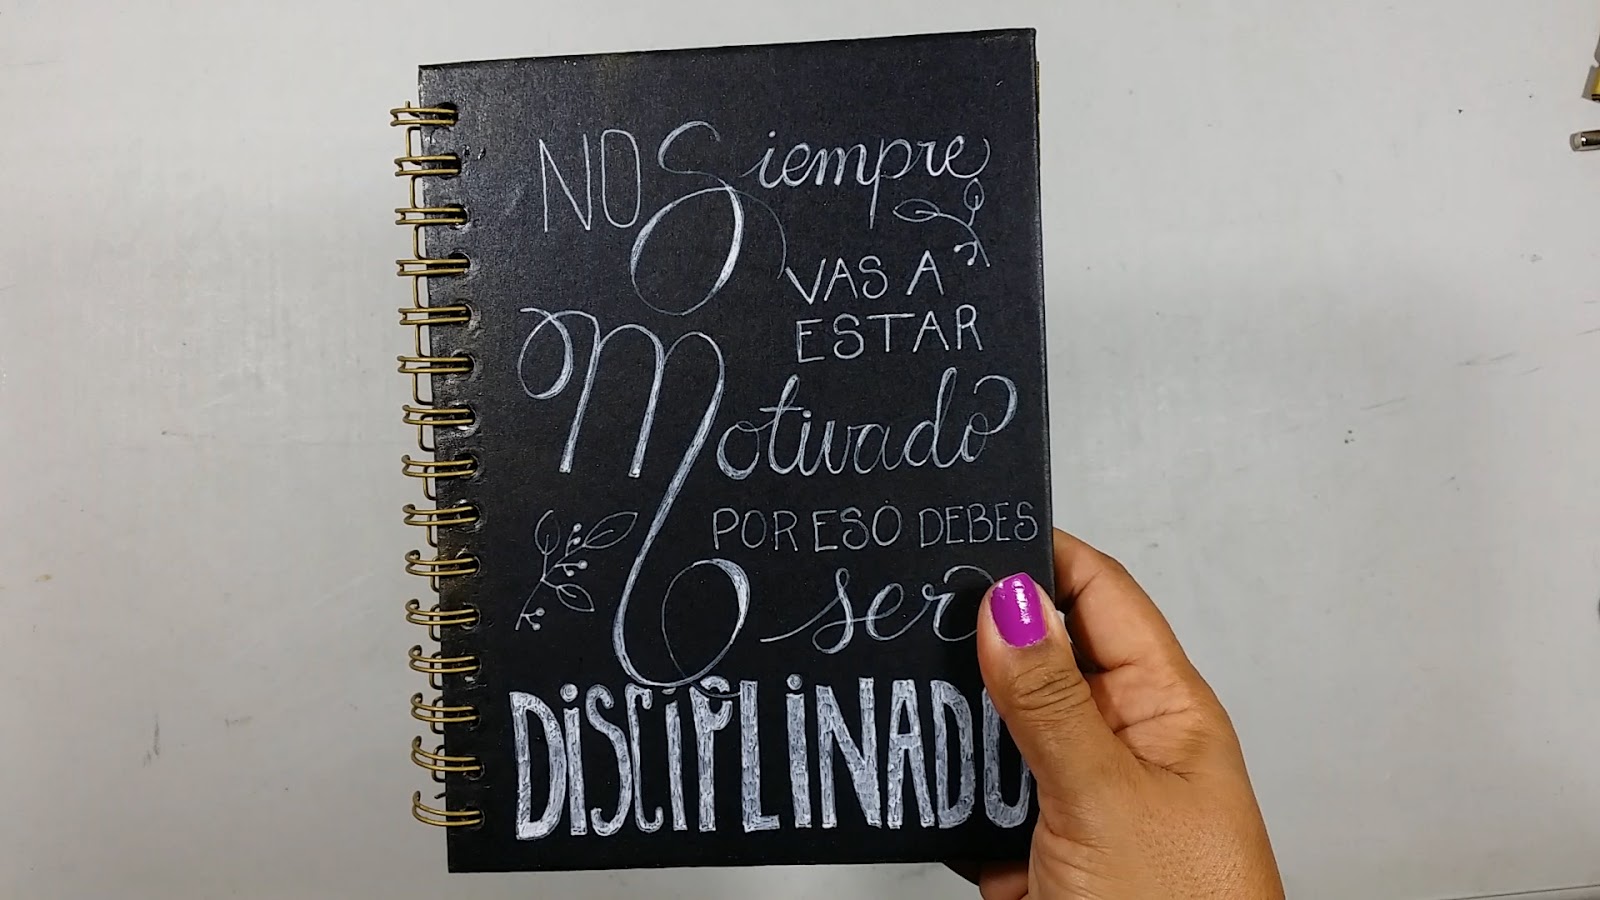 NO Siempre
VAS A
ESTAR
Motivado
POR ESO DEBES
ser
DISCIPLINADO